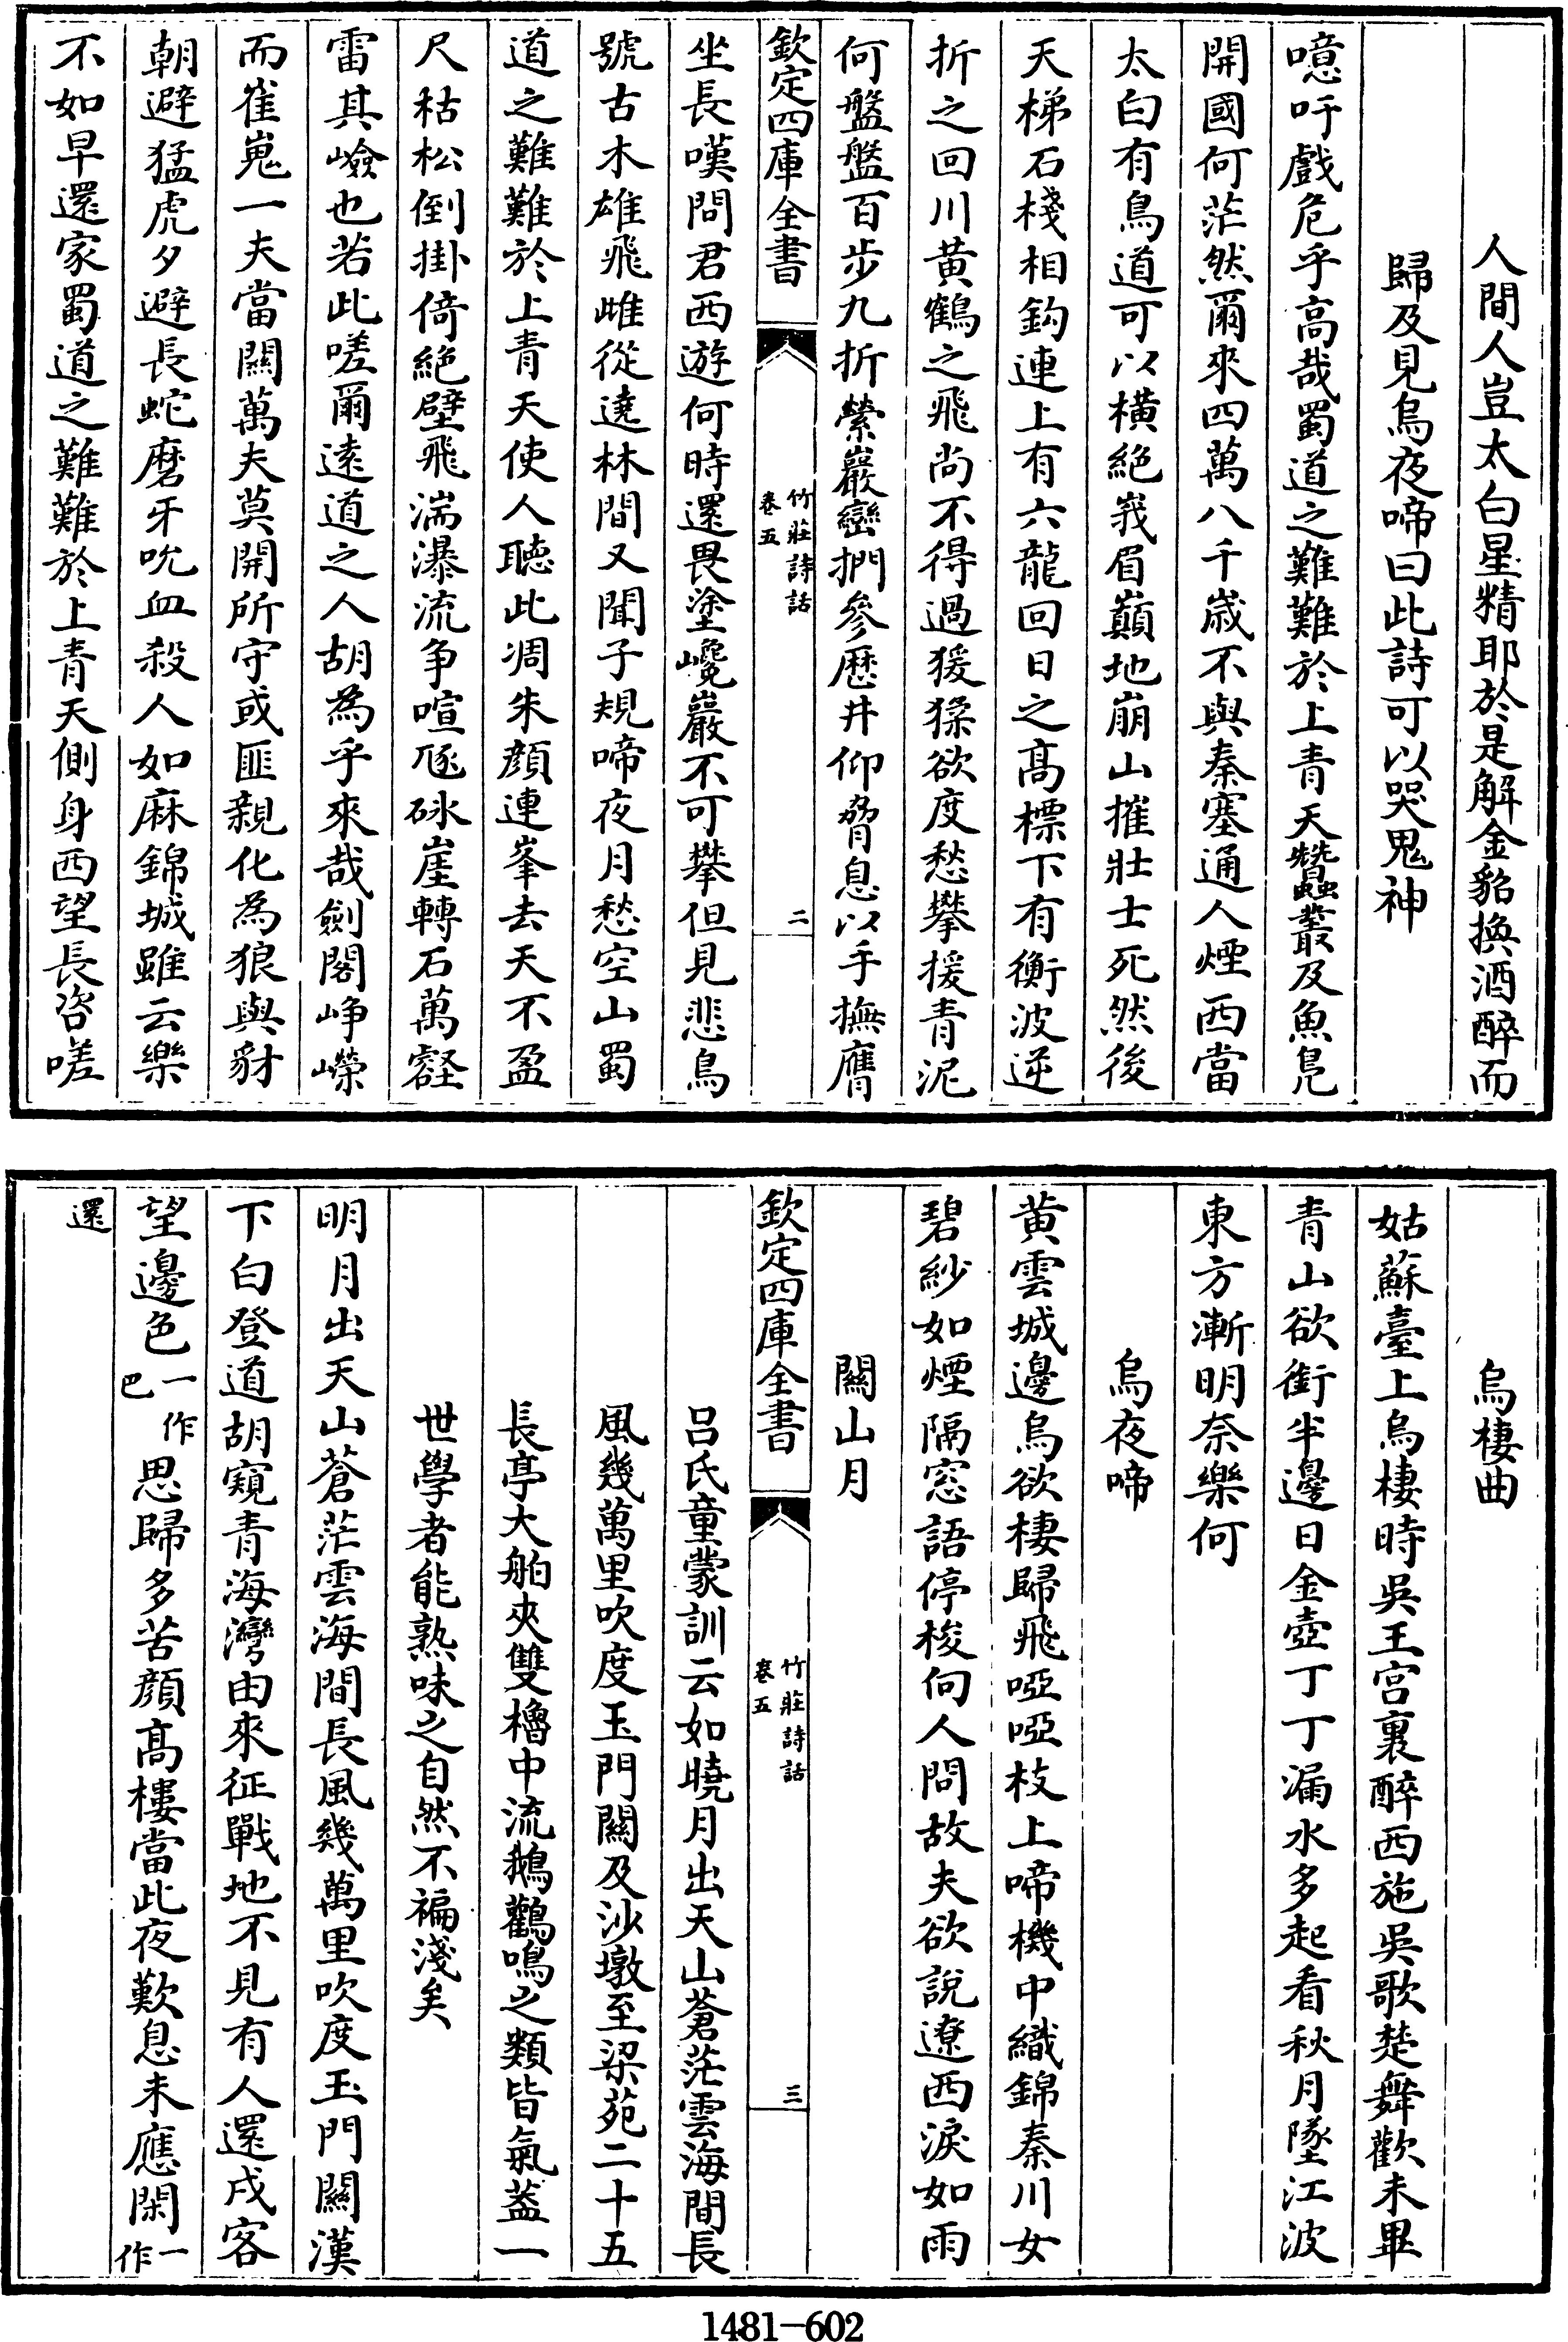 人間人豈太白星精耶於是解金貂換酒醉而
歸及見烏夜啼曰此詩可以哭鬼神
噫吁戲危乎高哉蜀道之難難於上青天蠶叢及魚鳧
開國何茫然爾來四萬八千歲不與秦塞通人煙西當
太白有鳥道可以橫絕峩眉巔地崩山摧壯士死然後
天梯石棧相鈎連上有六龍回日之高標下有衡波逆
折之回川黃鶴之飛尚不得過猨猱欲度愁攀援青泥
何盤盤百步九折縈巖巒捫參歷井仰脅息以手撫膺
欽定四庫全書
竹莊詩話
卷五
二
坐長嘆問君西遊何時還畏塗巉巖不可攀但見悲鳥
號古木雄飛雌從遶林間又聞子規啼夜月愁空山蜀
道之難難於上青天使人聽此凋朱顏連峯去天不盈
尺枯松倒掛倚絕壁飛湍瀑流爭喧豗砯崖轉石萬壑
雷其嶮也若此嗟爾遠道之人胡為乎來哉劍閣崢嶸
而崔嵬一夫當關萬夫莫開所守或匪親化為狼與豺
朝避猛虎夕避長蛇磨牙吮血殺人如麻錦城雖云樂
不如早還家蜀道之難難於上青天側身西望長咨嗟
烏棲曲
姑蘇臺上烏棲時吳王宮裏醉西施吳歌楚舞歡未畢
青山欲銜半邊日金壺丁丁漏水多起看秋月墜江波
東方漸明奈樂何
烏夜啼
黃雲城邊烏欲棲歸飛啞啞枝上啼機中織錦秦川女
碧紗如煙隔窓語停梭向人問故夫欲說遼西淚如雨
關山月
欽定四庫全書
竹莊詩話
卷五
三
呂氏童蒙訓云如曉月出天山蒼茫雲海間長
風幾萬里吹度玉門關及沙墩至梁苑二十五
長亭大舶夾雙櫓中流鵝鸛鳴之類皆氣蓋一
世學者能熟味之自然不褊淺矣
明月出天山蒼茫雲海間長風幾萬里吹度玉門關漢
下白登道胡窺青海灣由來征戰地不見有人還戍客
望邊色一作巴思歸多苦顏高樓當此夜歎息未應閑一作
還
1481-602